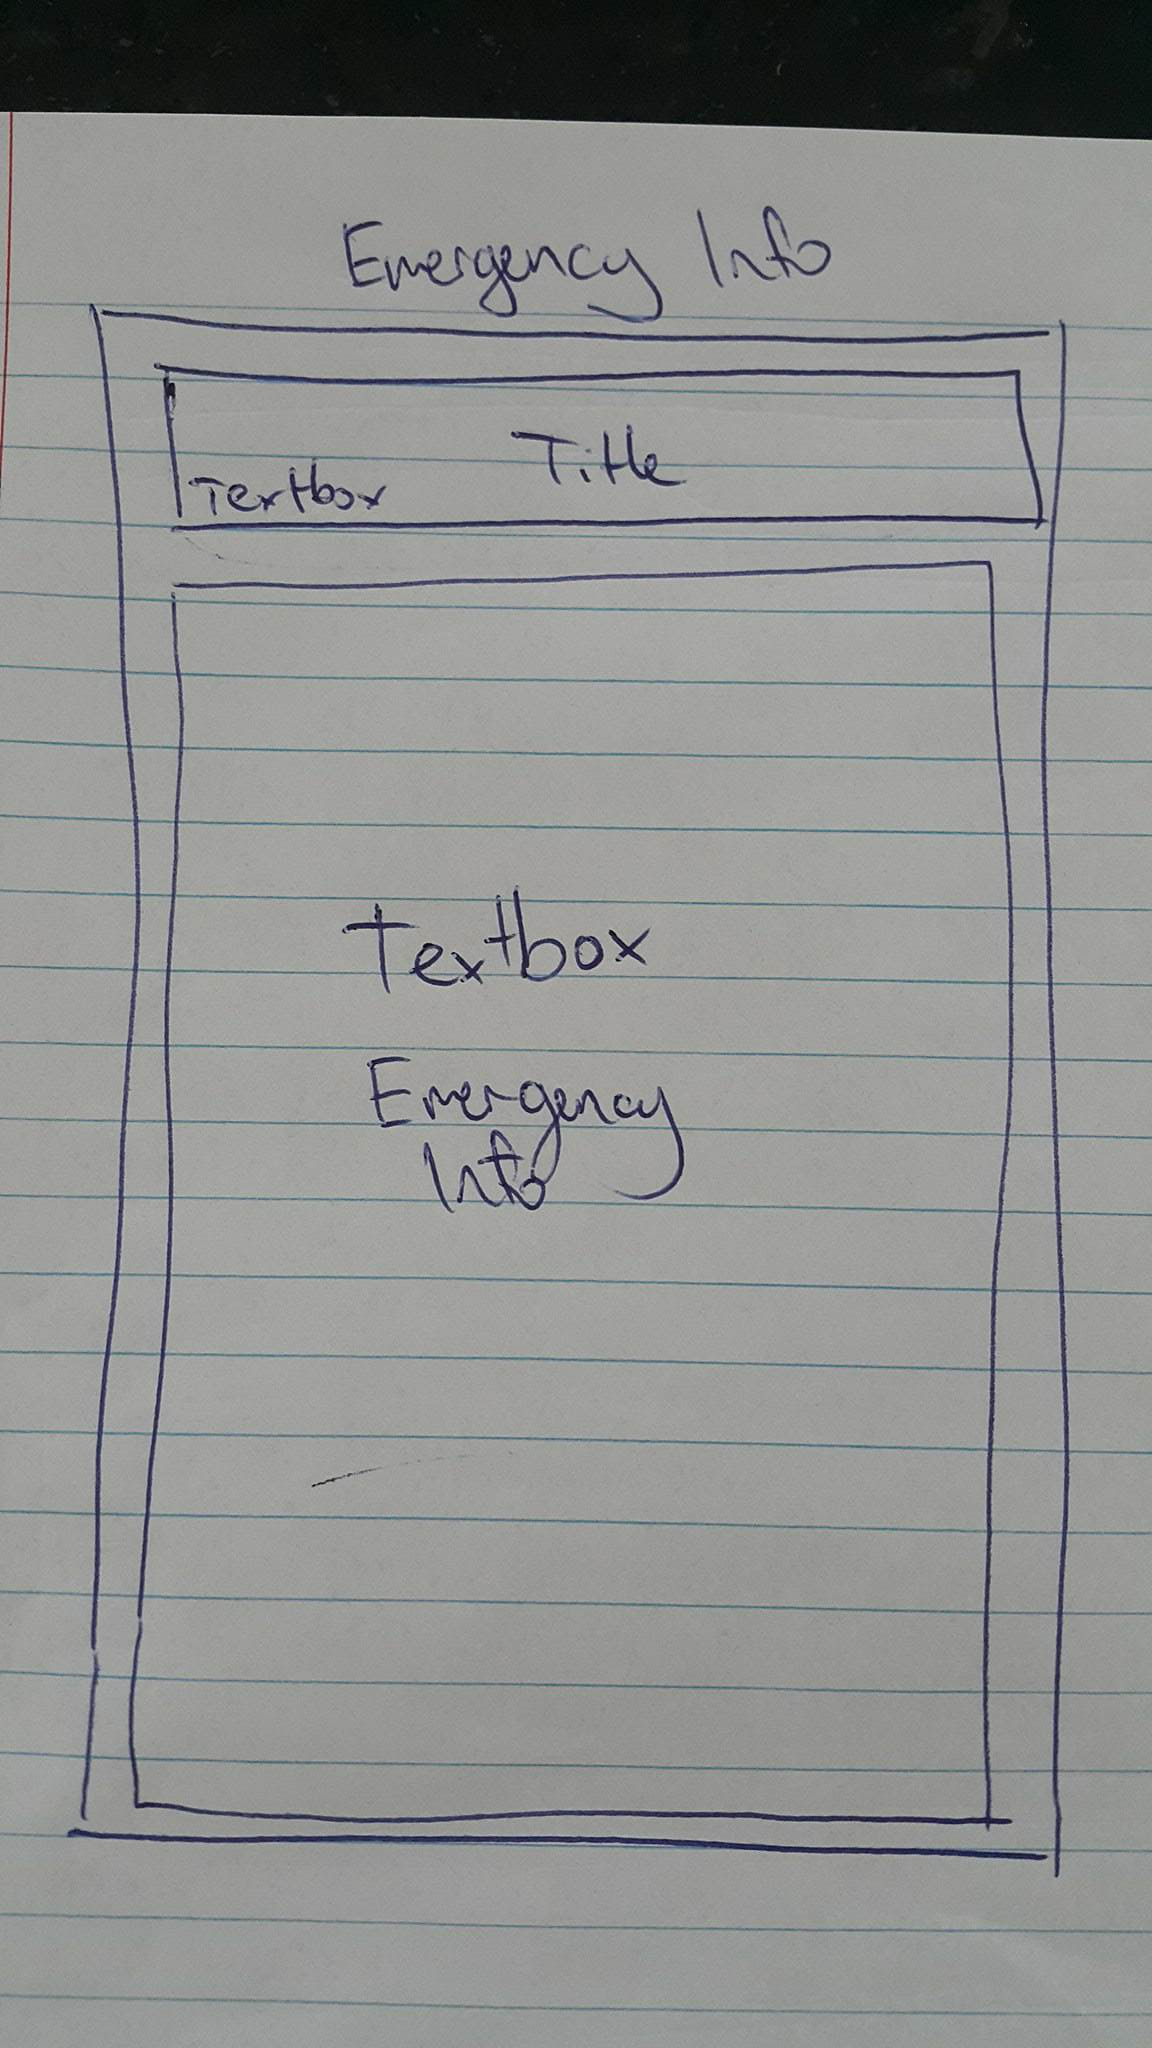 Emergency Info
Title
Textbox
Textbox
Emergency
Info